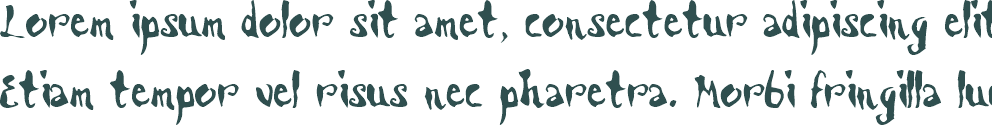 Lorem ipsum dolor sit amet, consectetur adipiscing elit
Etiam tempor vel risus nec pharetra. Morbi fringilla